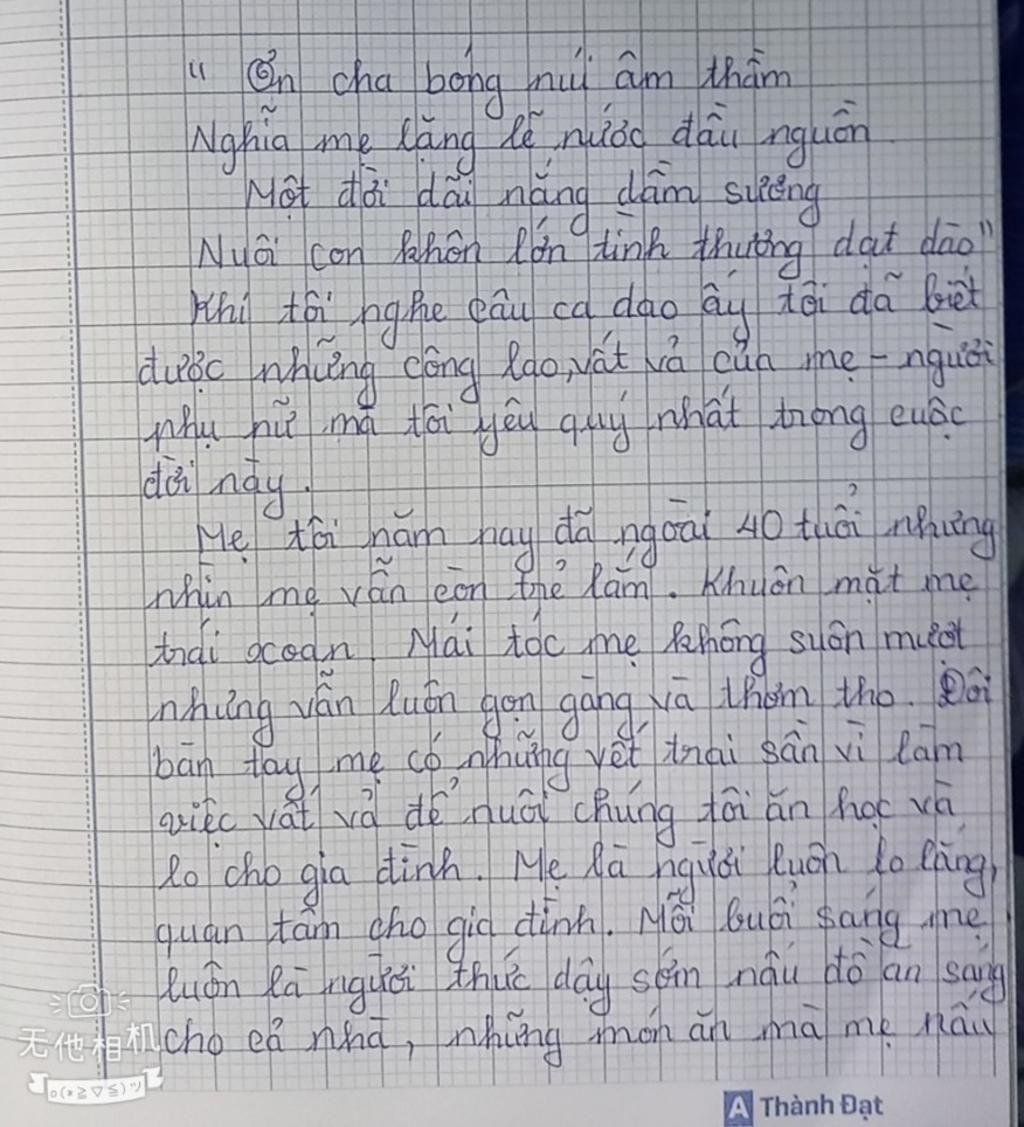 " Ơn cha bóng núi âm thầm
Nghĩa mẹ lặng lẽ nước đầu nguồn
Một đời dãi nắng dầm sương
Nuôi con khôn lớn tình thương dạt dào"
Khi tôi nghe câu ca dao ấy tôi đã biết
được những công lao, vất vả của mẹ - người
phụ nữ mà tôi yêu quý nhất trong cuộc
đời này.
Mẹ tôi năm nay đã ngoài 40 tuổi nhưng
nhìn mẹ vẫn còn trẻ lắm. Khuôn mặt mẹ
trái xoan. Mái tóc mẹ không suôn mượt
nhưng vẫn luôn gọn gàng và thơm tho. Đôi
bàn tay mẹ có những vết trai sần vì làm
việc vất vả để nuôi chúng tôi ăn học và
lo cho gia đình. Mẹ là người luôn lo lắng,
quan tâm cho gia đình. Mỗi buổi sáng mẹ
luôn là người thức dậy sớm nấu đồ ăn sáng
cho cả nhà, những món ăn mà mẹ nấu
无他相机
o(*≧▽≦)ツ
A Thành Đạt